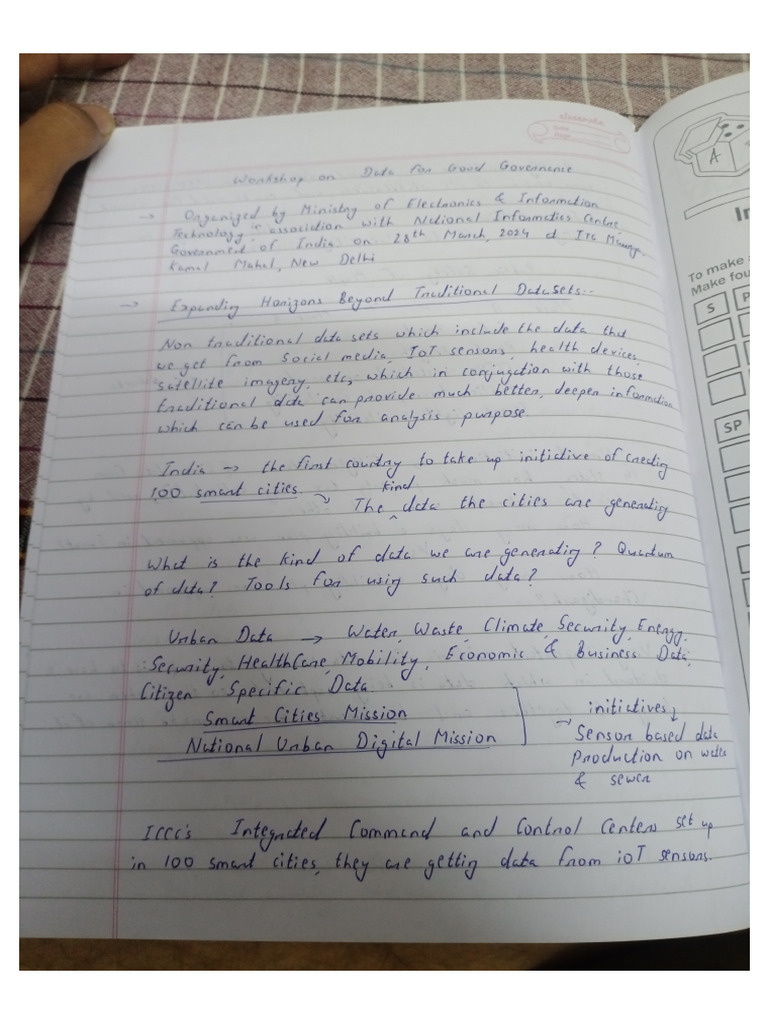 classmate
Date
Page
Workshop on Data for Good Governance
→ Organized by Ministry of Electronics & Information
Technology in association with National Informatics Centre,
Government of India on 28th March, 2024 at ITC Maurya,
Kamal Mahal, New Delhi
→ Expanding Horizons Beyond Traditional Data Sets..
Non traditional data sets which include the data that
we get from social media, IoT sensors, health devices,
satellite imagery, etc, which in conjugation with those
traditional data can provide much better, deeper information
which can be used for analysis purpose.
India → the first country to take up initiative of creating
100 smart cities. → The kind data the cities are generating
What is the kind of data we are generating? Quantum
of data? Tools for using such data?
Urban Data → Water, Waste, Climate, Security, Energy,
Security, HealthCare, Mobility, Economic & Business Data,
Citizen Specific Data.
Smart Cities Mission
National Urban Digital Mission
initiatives
→ Sensor based data
Production on water
& sewer
ICCC's Integrated Command and Control Centers set up
in 100 smart cities, they are getting data from ioT sensors.
A
In
To make a
Make fou
S
P
SP